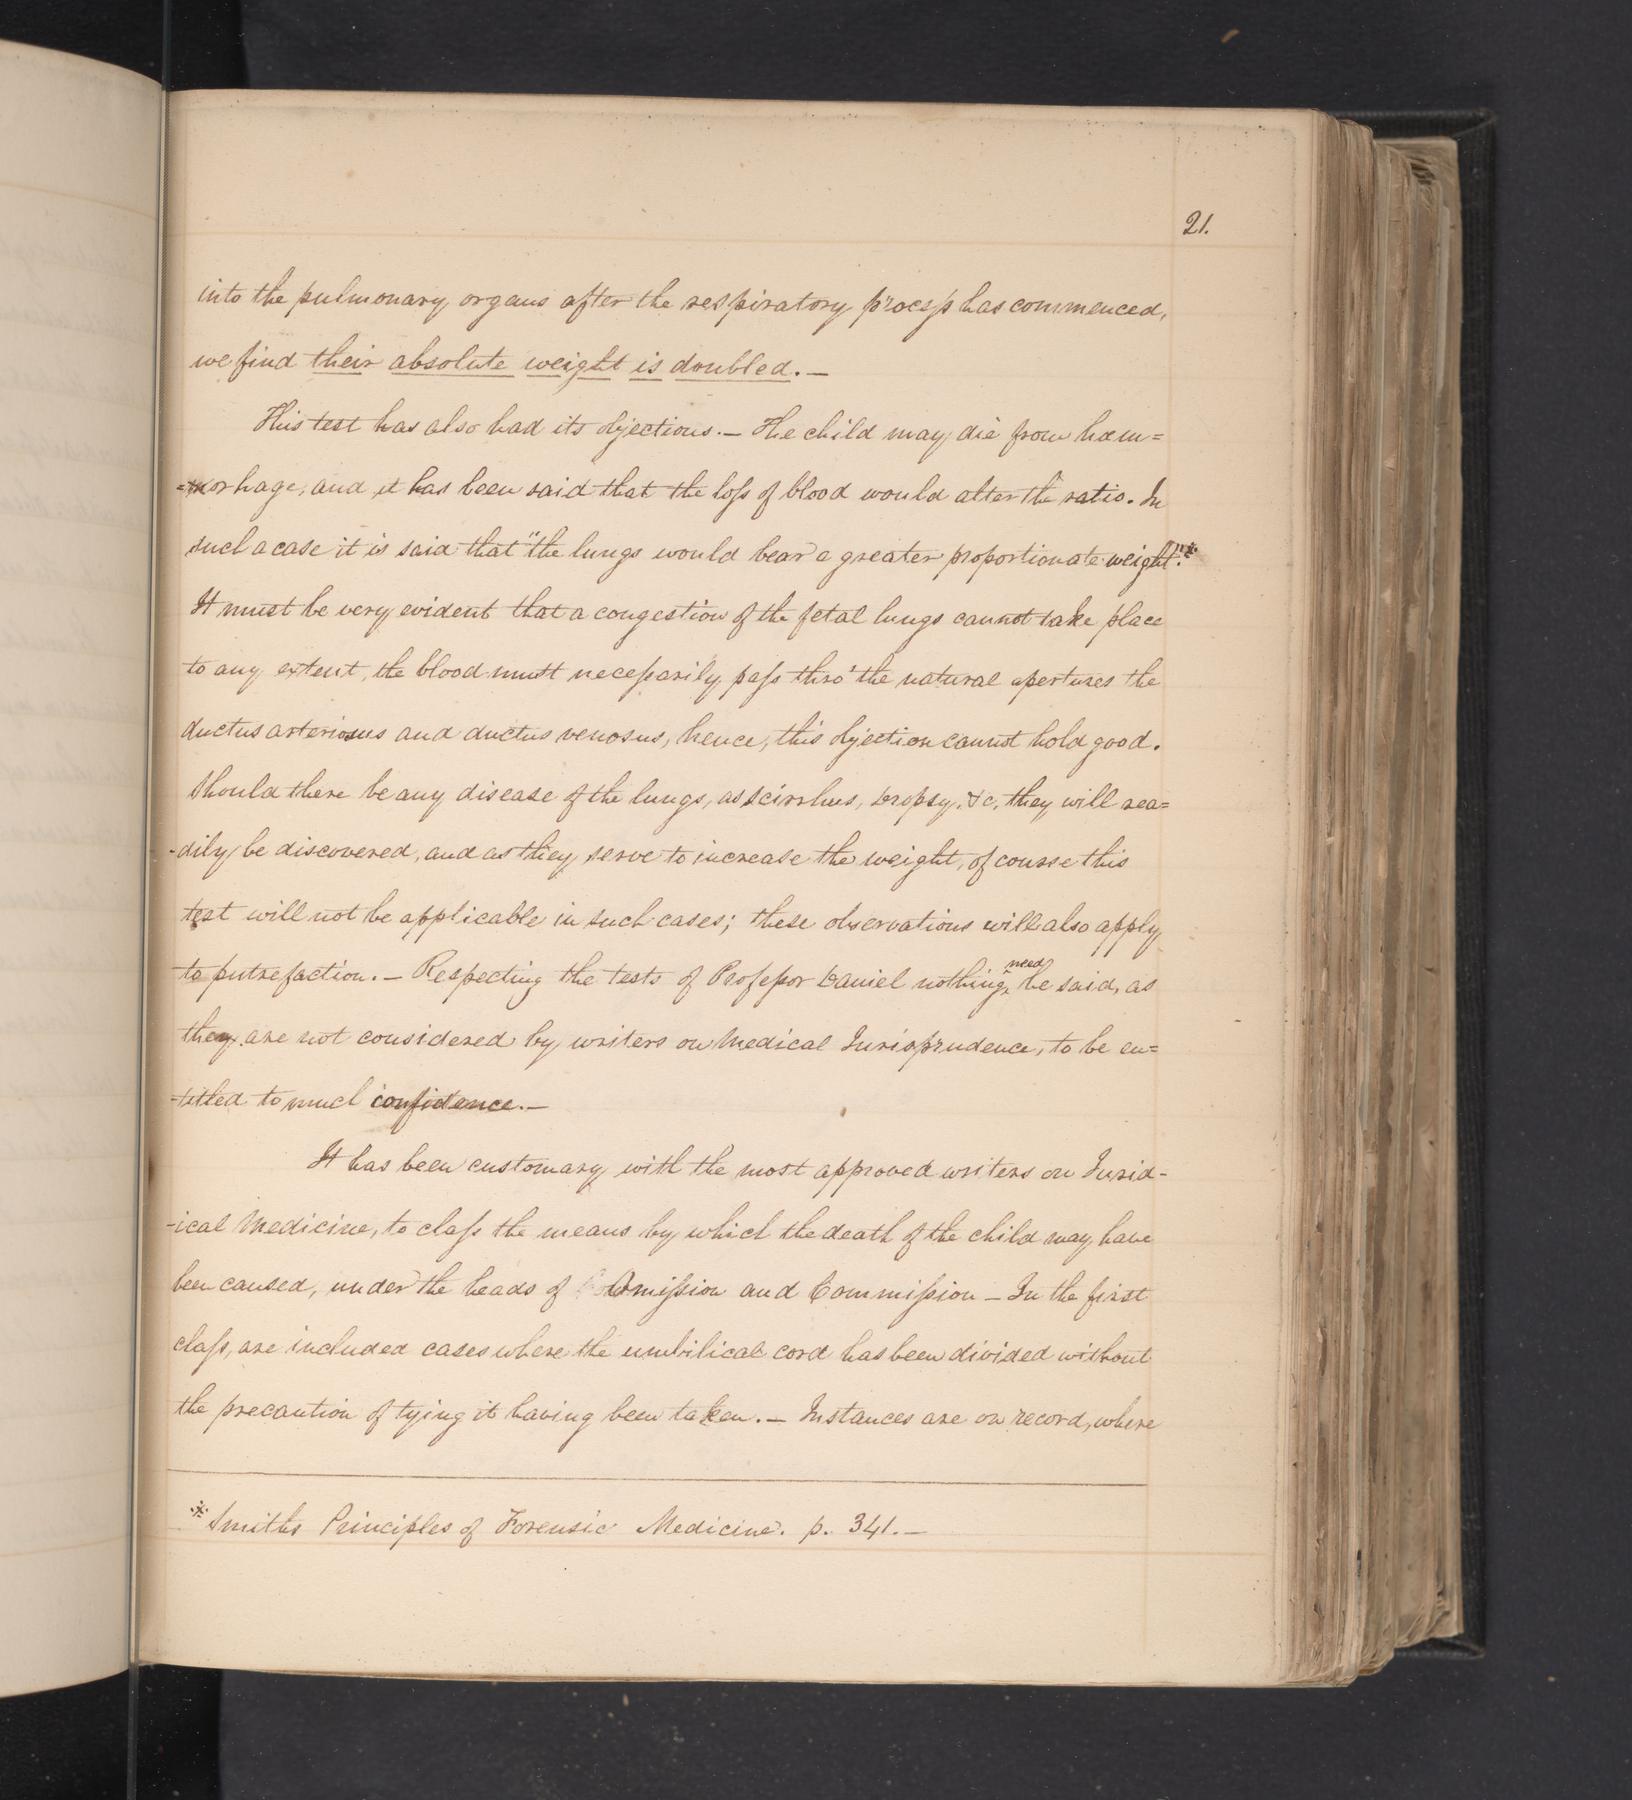 21.
into the pulmonary organs after the respiratory process has commenced,
we find their absolute weight is doubled. —
This test has also had its objections. — The child may die from hæm=
=morhage, and it has been said that the loss of blood would alter the ratio. In
such a case it is said that "the lungs would bear a greater proportionate weight."*
It must be very evident that a congestion of the fetal lungs cannot take place
to any extent, the blood must necessarily pass thro' the natural apertures the
ductus arteriosus and ductus venosus, hence, this objection cannot hold good.
Should there be any disease of the lungs, as scirrhus, dropsy, &c, they will rea=
-dily be discovered, and as they serve to increase the weight, of course this
test will not be applicable in such cases; these observations will also apply
to putrefaction. — Respecting the tests of Professor Daniel nothing need be said, as
they are not considered by writers on Medical Jurisprudence, to be en=
-titled to much confidence. —
It has been customary with the most approved writers on Jurid-
-ical Medicine, to class the means by which the death of the child may have
been caused, under the heads of Omission and Commission — In the first
class, are included cases where the umbilical cord has been divided without
the precaution of tying it having been taken. — Instances are on record, where
* Smiths Principles of Forensic Medicine. p. 341. —